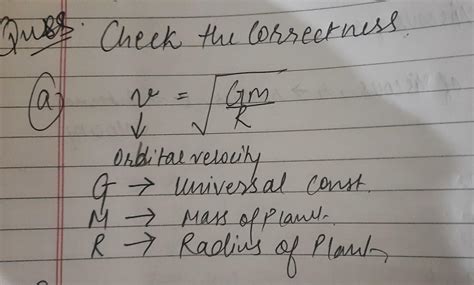 Ques. Check the Correctness.
(a) v = √(GM/R)
↓
Orbital velocity
G → Universal Const.
M → Mass of Planet.
R → Radius of Planet